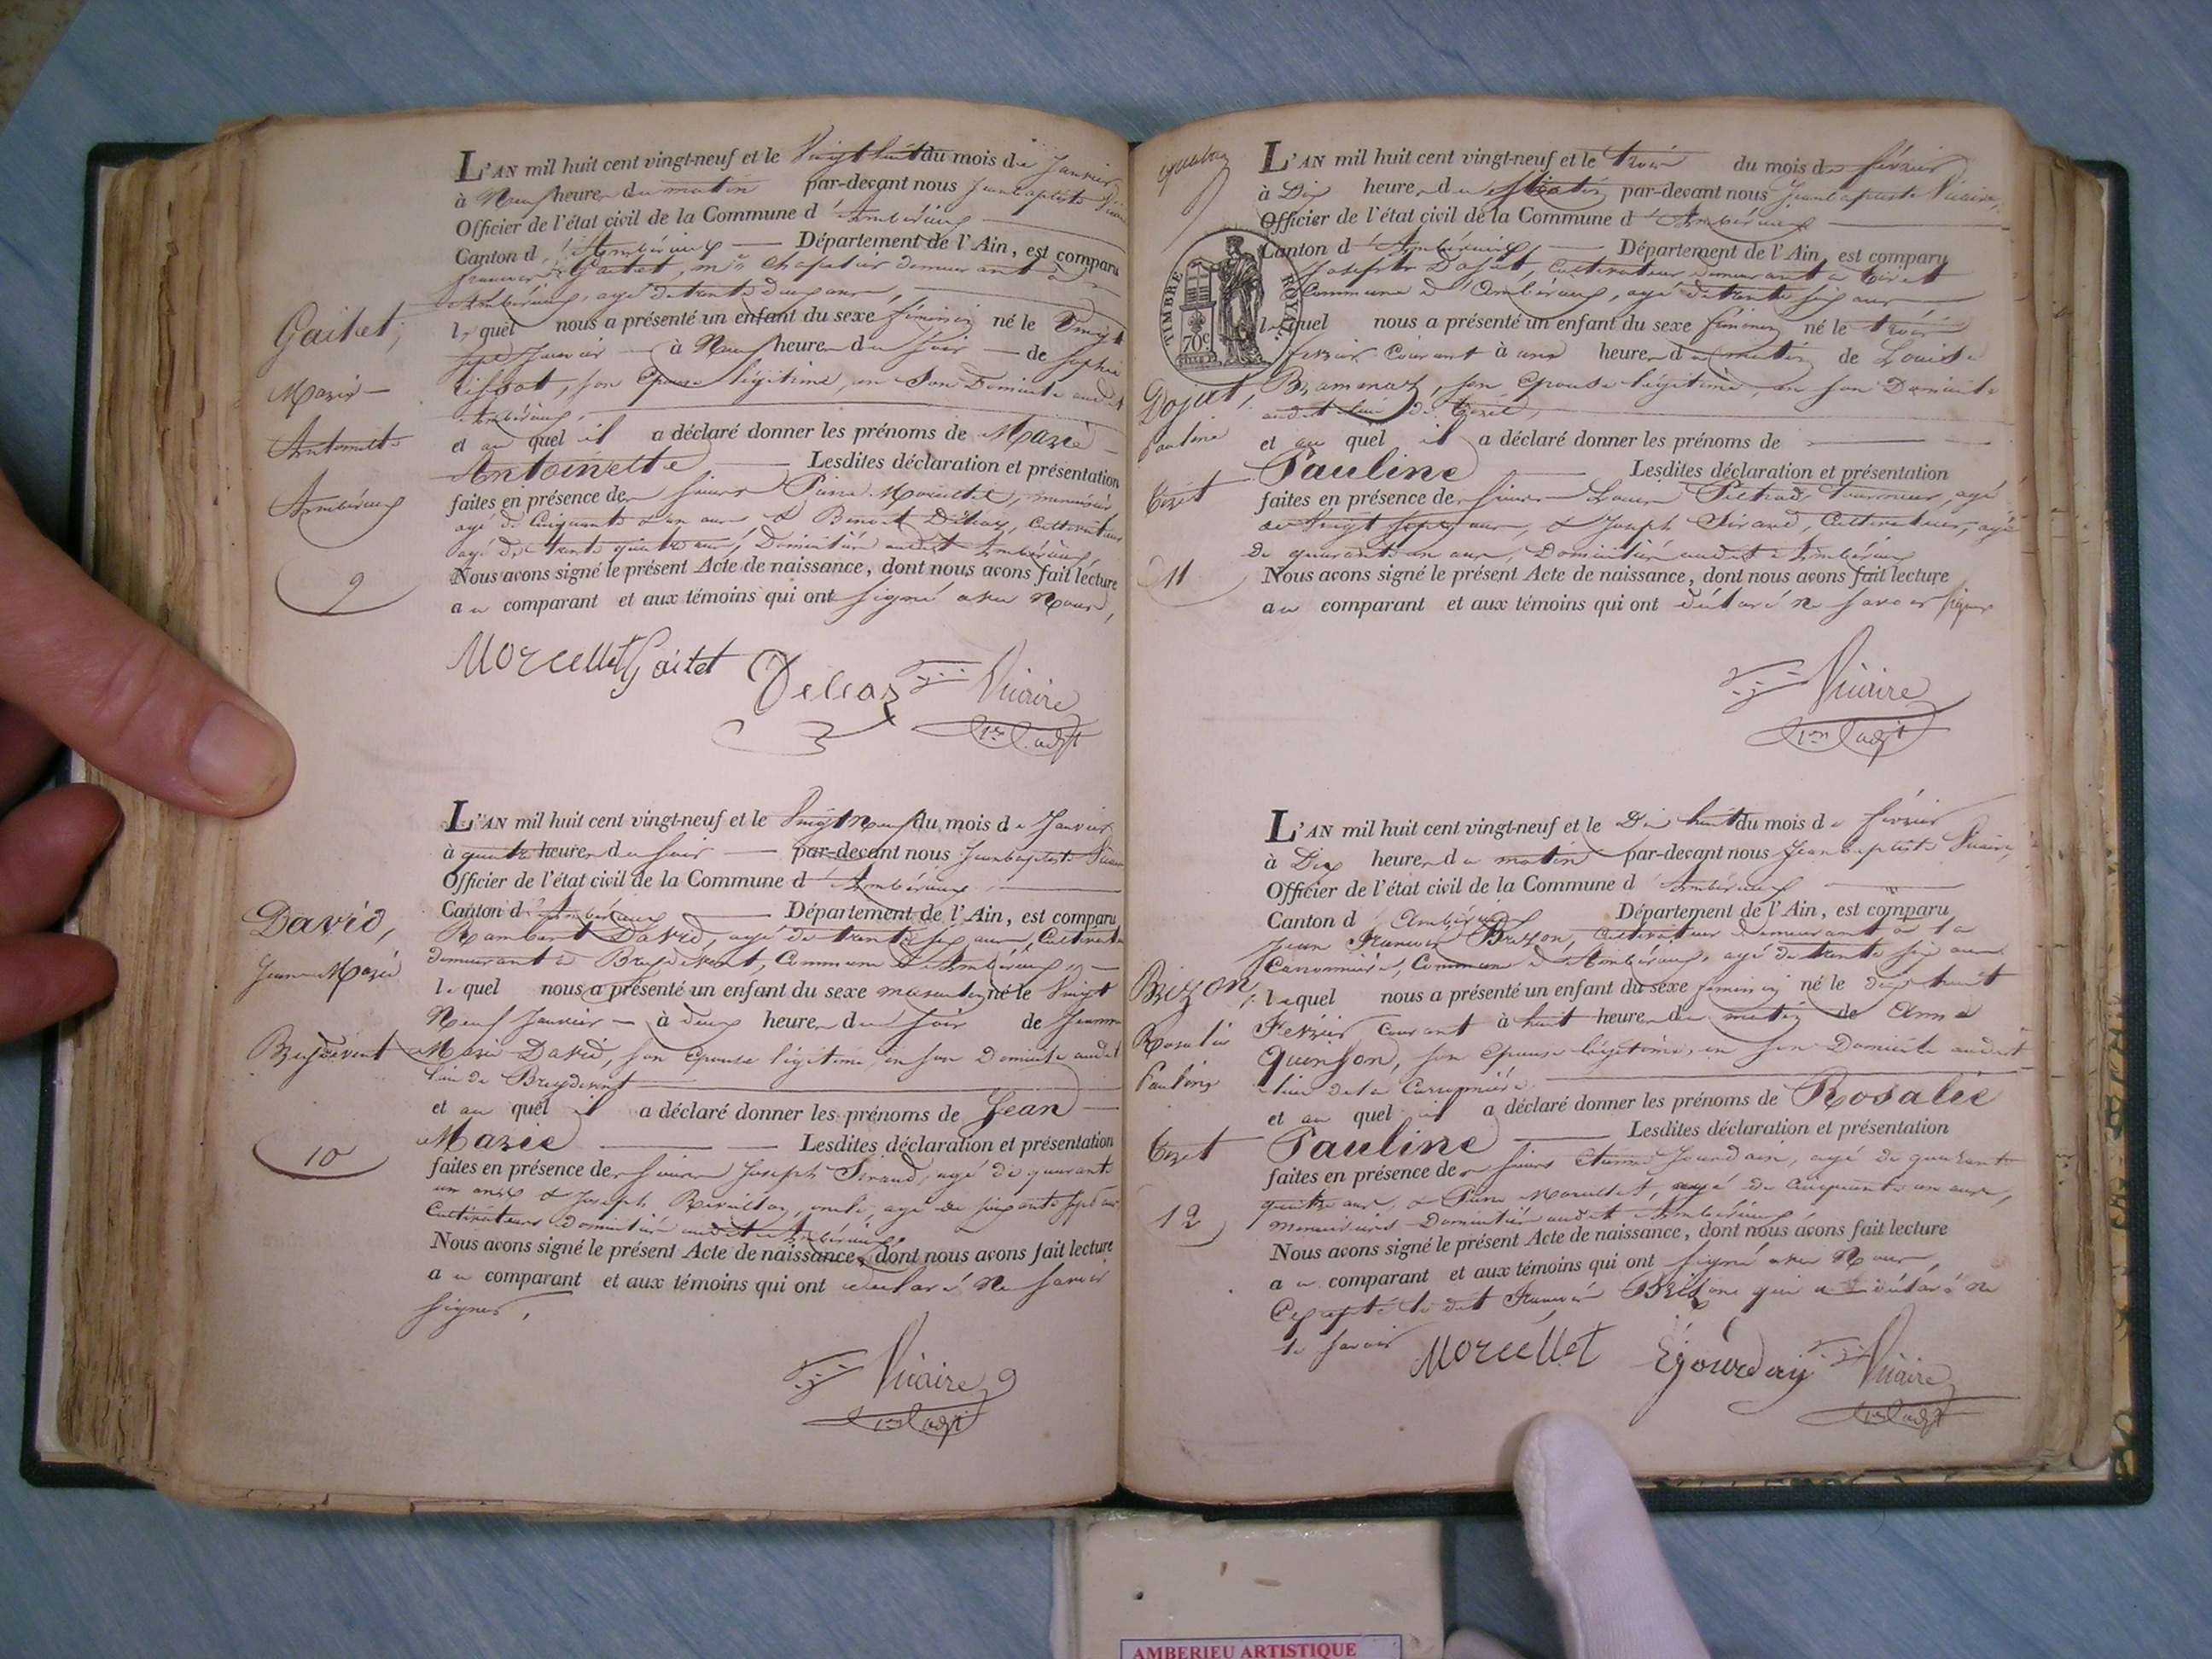 Gaitet,
Marie
Antoinette
Ambérieux
9
L'AN mil huit cent vingt-neuf et le Vingt huit du mois de Janvier
à Neuf heures du matin par-devant nous Jean baptiste Vicaire
Officier de l'état civil de la Commune d'Ambérieux
Canton d'Ambérieux Département de l'Ain, est comparu
Gaitet, Chapelier demeurant à
Ambérieux, agé de trente deux ans,
lequel nous a présenté un enfant du sexe féminin né le Vingt
sept Janvier à Neuf heures du soir de Sophie
son épouse légitime, en son Domicile audit
Ambérieux,
et auquel il a déclaré donner les prénoms de Marie
Antoinette Lesdites déclaration et présentation
faites en présence des sieurs Pierre Morcellet, menuisier
agé de Cinquante un ans, & Benoit Deleaz, Cultivateur
agé de trente quatre ans, Domiciliés audit Ambérieux,
Nous avons signé le présent Acte de naissance, dont nous avons fait lecture
au comparant et aux témoins qui ont signé avec Nous,
Morcellet Gaitet Deleaz Vicaire
1er adjt
David,
Jean Marie
Breydevent
10
L'AN mil huit cent vingt-neuf et le Vingt Neuf du mois de Janvier
à quatre heures du soir par-devant nous Jean baptiste Vicaire
Officier de l'état civil de la Commune d'Ambérieux
Canton d'Ambérieux Département de l'Ain, est comparu
Rambert David, agé de trente six ans, Cultivateur
demeurant à Breydevent, Commune d'Ambérieux,
lequel nous a présenté un enfant du sexe masculin né le Vingt
Neuf Janvier à deux heures du soir de Jeanne
Marie David, son épouse légitime, en son Domicile audit
lieu de Breydevent
et auquel il a déclaré donner les prénoms de Jean
Marie Lesdites déclaration et présentation
faites en présence des sieurs Joseph Sirand, agé de quarante
un ans & Joseph agé de soixante sept ans
Cultivateurs Domiciliés audit Ambérieux,
Nous avons signé le présent Acte de naissance, dont nous avons fait lecture
au comparant et aux témoins qui ont déclaré Ne savoir
signer,
Vicaire
1er adjt
TIMBRE ROYAL.
70c
Dojat,
Pauline
Tiret
11
L'AN mil huit cent vingt-neuf et le trois du mois de février
à Dix heures du Matin par-devant nous Jean baptiste Vicaire,
Officier de l'état civil de la Commune d'Ambérieux
Canton d'Ambérieux Département de l'Ain, est comparu
Joseph Dojat, Cultivateur demeurant à Tiret
Commune d'Ambérieux, agé de trente six ans
lequel nous a présenté un enfant du sexe féminin né le trois
fevrier Courant à une heure du matin de Louise
Brameraz, son épouse légitime, en son Domicile
audit lieu de Tiret,
et auquel il a déclaré donner les prénoms de
Pauline Lesdites déclaration et présentation
faites en présence des sieurs agé
de Vingt sept ans, & Joseph Sirand, Cultivateur, agé
de quarante un ans, Domiciliés audit Ambérieux
Nous avons signé le présent Acte de naissance, dont nous avons fait lecture
au comparant et aux témoins qui ont déclaré ne savoir signer
Vicaire
1er adjt
Brizon,
Rosalie
Pauline
Tiret
12
L'AN mil huit cent vingt-neuf et le Dix huit du mois de février
à Dix heures du matin par-devant nous Jean baptiste Vicaire,
Officier de l'état civil de la Commune d'Ambérieux
Canton d'Ambérieux Département de l'Ain, est comparu
Jean François Brizon, Cultivateur demeurant à la
Commune d'Ambérieux, agé de trente six ans
lequel nous a présenté un enfant du sexe feminin né le dix huit
Fevrier Courant à huit heures du matin de Anne
Quinson, son épouse légitime, en son Domicile audit
lieu de la
et auquel il a déclaré donner les prénoms de Rosalie
Pauline Lesdites déclaration et présentation
faites en présence des sieurs Etienne Jourdain, agé de quarante
quatre ans, & Pierre Morcellet, agé de Cinquante un ans,
menuisiers Domiciliés audit Ambérieux
Nous avons signé le présent Acte de naissance, dont nous avons fait lecture
au comparant et aux témoins qui ont signé avec Nous,
Excepté le dit François Brizon qui a déclaré ne
le savoir
Morcellet Ejourdain Vicaire
1er adjt
AMBERIEU ARTISTIQUE